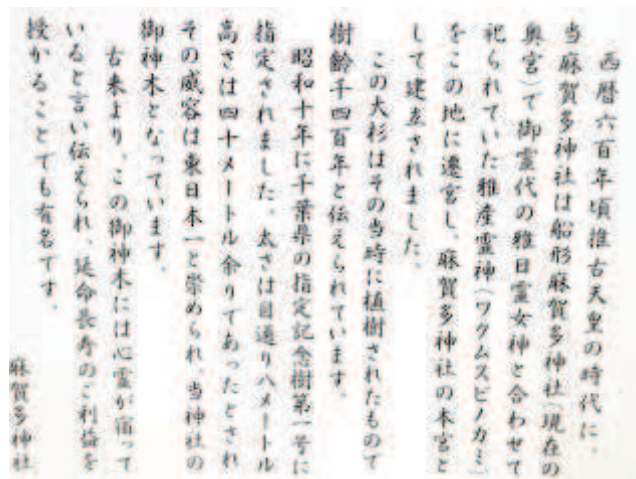 西暦六百年頃推古天皇の時代に、
当麻賀多神社は船形麻賀多神社（現在の
奥宮）で御霊代の稚日霊女神と合わせて
祀られていた稚産霊神（ワクムスビノカミ）
をこの地に遷宮し、麻賀多神社の本宮と
して建立されました。
この大杉はその当時に植樹されたもので
樹齢千四百年と伝えられています。
昭和十年に千葉県の指定記念樹第一号に
指定されました。太さは目通り八メートル
高さは四十メートル余りであったとされ
その威容は東日本一と崇められ、当神社の
御神木となっています。
古来より、この御神木には心霊が宿って
いると言い伝えられ、延命長寿のご利益を
授かることでも有名です。
麻賀多神社